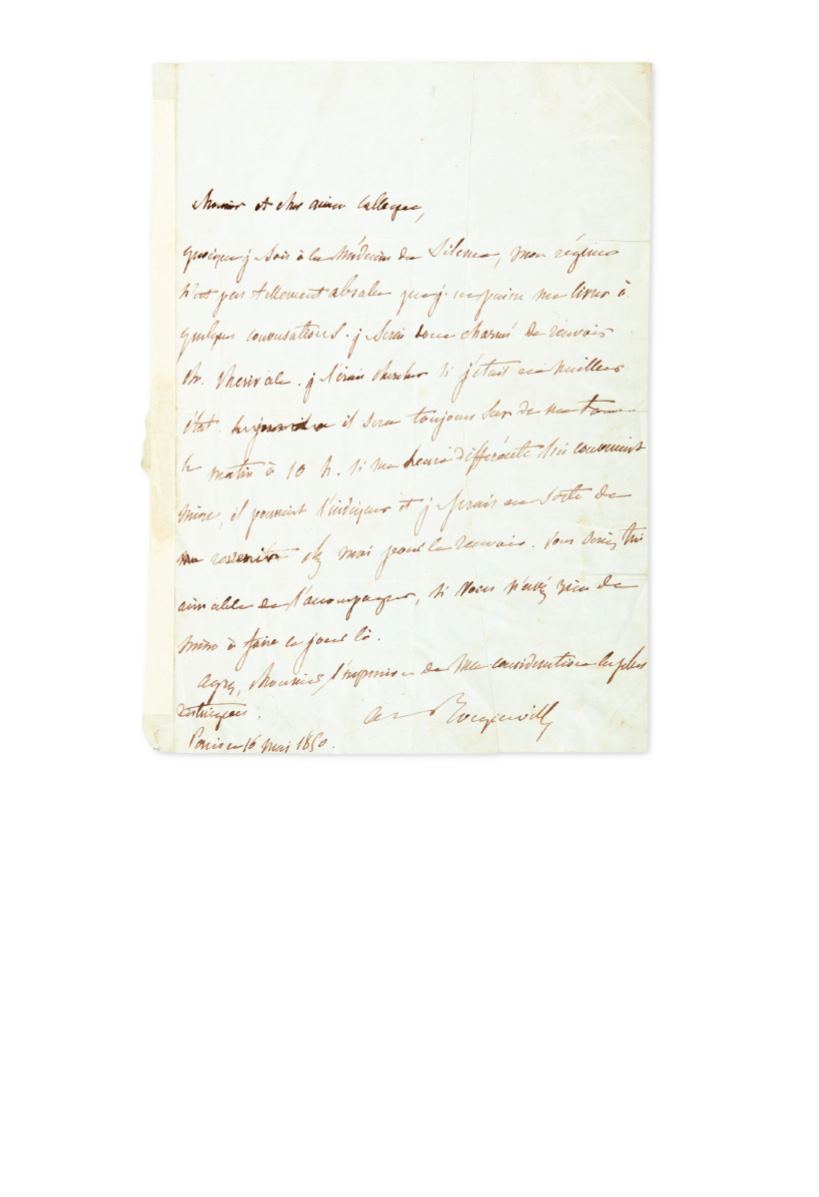 Monsieur et cher ancien Collegue,
quoique je sois à la Médecine du Silence, mon régime
n'est pas tellement absolu que je ne puisse me livrer à
quelques conversations. je serai donc charmé de revoir
Mr. Merivale. je l'irais chercher si j'étais en meilleur
état. il sera toujours sur de me trouver
le matin à 10 h. si une heure différente lui convenait
mieux, il pourrait l'indiquer et je ferais en sorte de
chez moi pour le recevoir. vous seriez très
aimable de l'accompagner, si vous n'avez rien de
mieux à faire ce jour là.
agréez, Monsieur, l'expression de ma considération la plus
distinguée. A de Tocqueville
Paris ce 16 mai 1850.